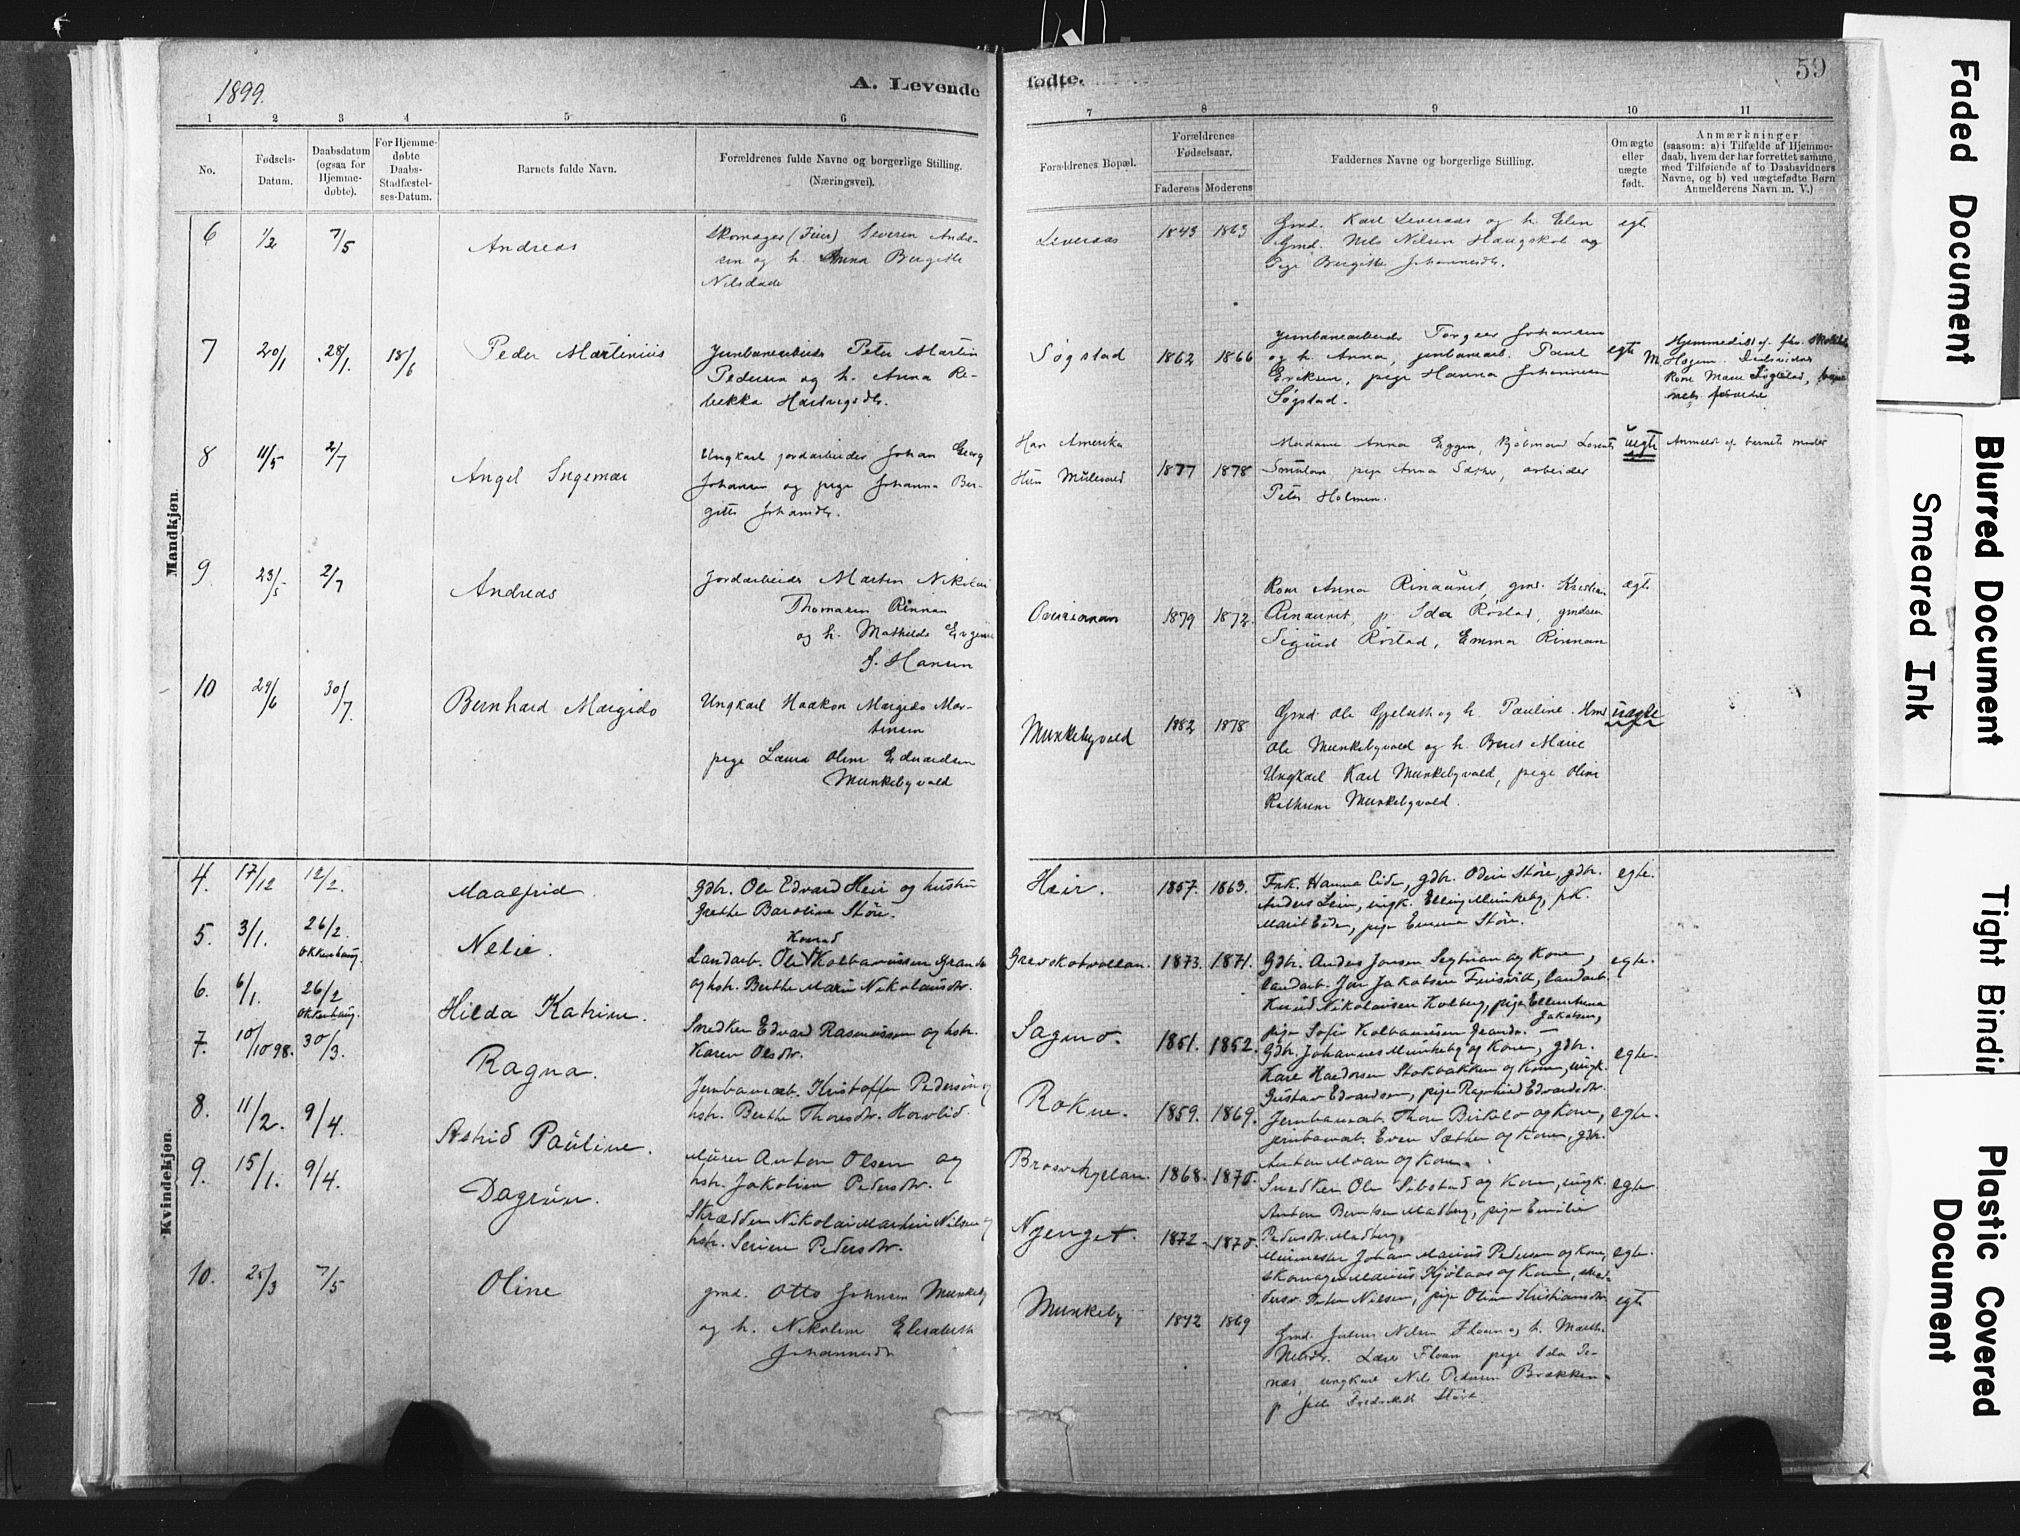 1899.
A. Levende
fødte.
59
1 2 3 4 5 6 7 8 9 10 11
No.
Fødsels-
Datum.
Daabsdatum
(ogsaa for
Hjemme-
døbte).
For Hjemme-
døbte
Daabs-
Stadfæstel-
ses-Datum.
Barnets fulde Navn.
Forældrenes fulde Navne og borgerlige Stilling.
(Næringsvei).
Forældrenes Bopæl.
Forældrenes
Fødselsaar.
Faderens
Moderens
Faddernes Navne og borgerlige Stilling.
Om ægte
eller
uægte
født.
Anmærkninger
(saasom: a) i Tilfælde af Hjemme-
daab, hvem der har forrettet samme
med Tilføiende af to Daabsvidners
Navne, og b) ved uægtefødte Børn
Anmelderens Navn m. V.)
Mandkjøn.
6 1/2 7/5
Andreas
Skomager (Feier) Severin Andre-
sen og h. Anna Bergitte
Nilsdatter
Leveraas
1843 1863
Gmd. Karl Leveraas og h. Elen
Gmd. Nils Nilsen Haugskot og
Pige Bergitte Johannesdtr.
egt
7 20/1 28/1. 18/6
Peder Martinius
Jernbanearbeider Peter Martin
Pedersen og h. Anna Re-
bekka Hartvigsdtr.
Søgstad
1862 1866
Jernbanearbeider Torgeer Johansen
og h. Anna, jernbanearb. Paul
Eriksen, pige Hanna Johannesen
Søgstad.
egte
Hjemmedøbt af
Hagen.
Kone Marie Søgstad,
8 11/5 2/7
Angel Ingemar
Ungkarl jordarbeider Johan Georg
Johansen og pige Johanna Ber-
gitte Johansdtr.
Han Amerika
Hun Mulevold
1877 1878
Madame Anna Eggen, Kjøbmand Lorents
pige Anna Sæther, arbeider
Peter Holmen.
uegte
Anmeldt af barnets moder
9 23/5 2/7
Andreas
Jordarbeider Martin Nikolai
Thomasen Rinnan
og h. Mathilde Eugenie
J. Hansen
Overrinnan
1879 1872.
Kone Anna Rinaunet, gmd. Kristian
Rinaunet, p. Ida Røstad, gmdsøn
Sigurd Røstad, Emma Rinnan
ægte
10 29/6 30/7
Bernhard Margido
Ungkarl Haakon Margido Mor-
tensen
pige Laura Oline Edvardsen
Munkebyvald
Munkebyvald
1882 1878
Gmd. Ole Gjelseth og h. Pauline. Hmd
Ole Munkebyvald og h. Beret Marie
Ungkarl Karl Munkebyvald, pige Oline
Kathrine Munkebyvald.
uægte
Kvindekjøn.
4. 17/12 12/2.
Maalfrid.
Gdbr. Ole Edvard Heir og hustru
Grethe Baroline Støre.
Heir.
1857. 1863.
Frk. Hanna Eide, gdbr. Odin Støre, gdbr.
Anders Leim, ungk. Elling Munkeby, frk.
Marit Eide, pige Emma Støre.
egte.
5. 3/1. 26/2.
Okkenhaug.
Nelie.
Konrad
Landarb. Ole Kolbanussen Grande
og hstr. Berthe Marie Nikolaisdtr.
Grevskotvollan.
1873. 1871.
Gdbr. Anders Jonsen Segtnan og Kone,
landarb. Jon Jakobsen Finsvik, landarb.
Knud Nikolaisen Kolberg, pige Ellen Anna
Jakobsen,
pige Sofie Kolbanussen Grande. —
egte.
6. 6/1. 26/2
Okkenhaug.
Hilda Katrine.
Snedker Edvard Rasmussen og hstr.
Karen Olsdtr.
Sagmo.
1851. 1852.
Gdbr. Johannes Munkeby og Kone, gdbr.
Karl Haldorsen Stokbakken og Kone, ungk.
Gustav Edvardsen, pige Ragnhild Edvardsdtr.
egte.
7. 10/10 98. 30/3.
Ragna.
Jernbanearb. Kristoffer Pedersen og
hstr. Berthe Thoresdtr. Hovlid.
Rokne.
1859. 1869.
Jernbanearb. Thore Birkelo og Kone,
jernbanearb. Even Sæther og Kone, gdbr.
Anton Moan og Kone.
egte.
8. 11/2. 9/4.
Astrid Pauline.
Murer Anton Olsen og
hstr. Jakobine Pedersdtr.
1868. 1870.
Snedker Ole Sibstad og Kone, ungk.
Anton Berntsen Madberg, pige Emilie
Pedersdtr. Madberg.
egte.
9. 15/1. 9/4.
Dagrun.
Skrædder Nikolai Martin Nilsen og
hstr. Serine Pedersdtr.
Nyenget.
1872. 1870.
Murmester Johan Marius Pedersen og Kone,
skomager Marius Kjølaas og Kone,
Peter Nilsen, pige Oline Kristiansdtr
egte.
10. 25/3 7/5
Oline
gmd. Otto Johnsen Munkeby
og h. Nikoline Elisabeth
Johannesdtr
Munkeby
1872 1869
Gmd. Julius Nilsen Floan og h. Marth.
Nelsdtr. Lars Floan pige Ida Te-
næs, ungkarl Nils Pedersen Brækken
p. Fredrikke Støre.
egte
Faded Document
Blurred Document
Smeared Ink
Tight Bindin
Plastic Covered
Document